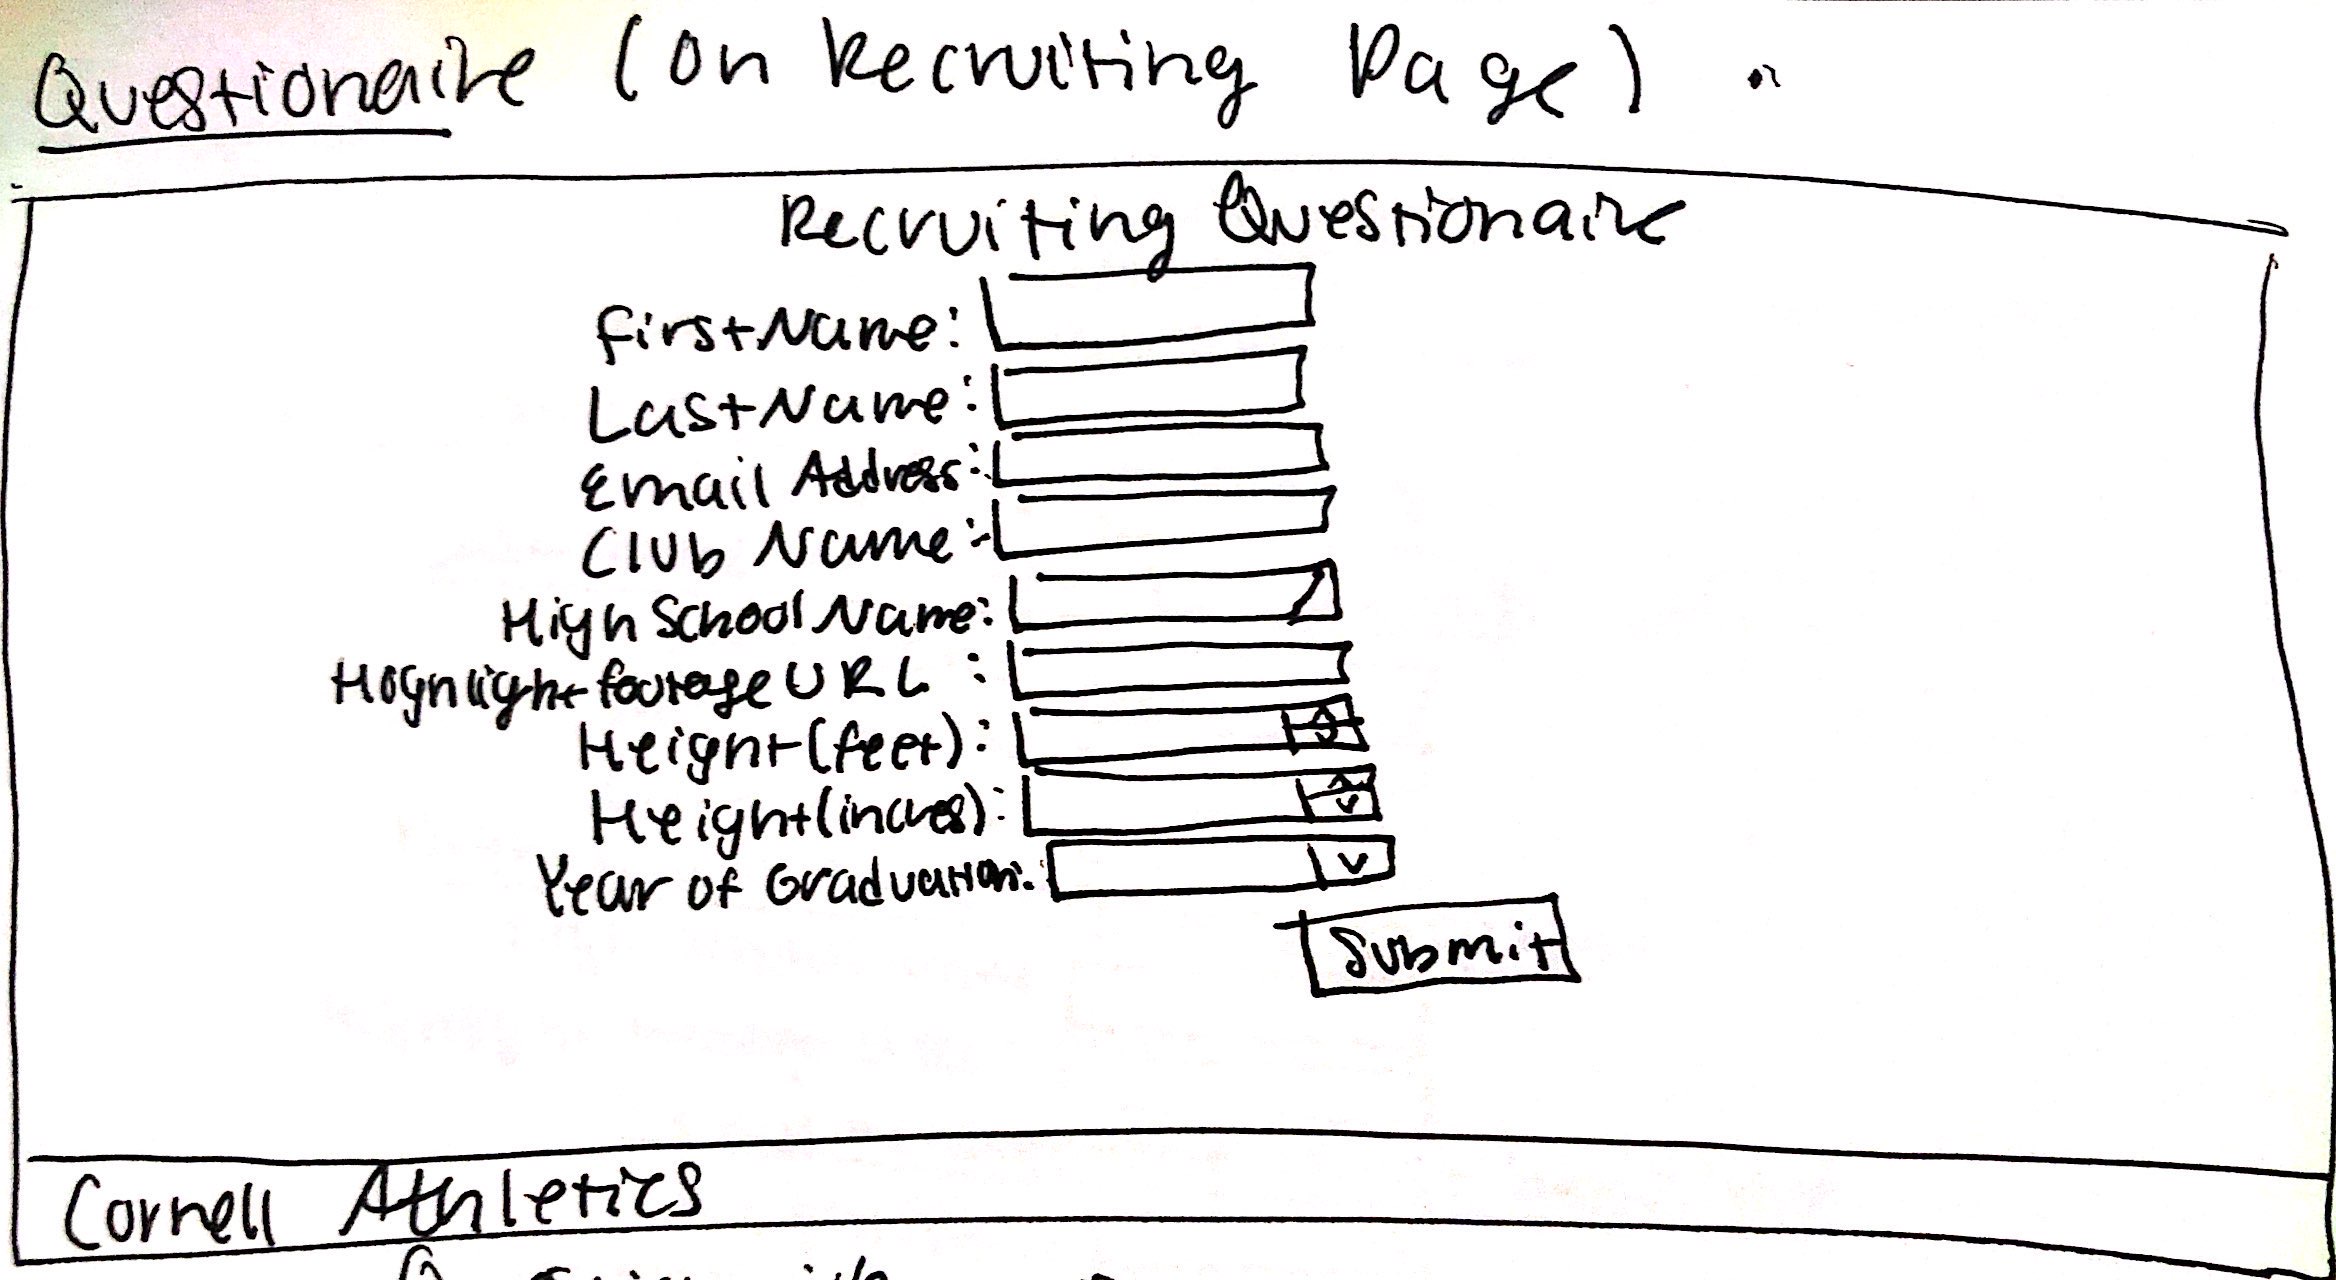 Questionaire (on Recruiting Page)
Recruiting Questionaire
First Name:
Last Name:
Email Address:
Club Name:
High School Name:
Highlight footage URL :
Height (feet):
Height (inches):
Year of Graduation:
Submit
Cornell Athletics